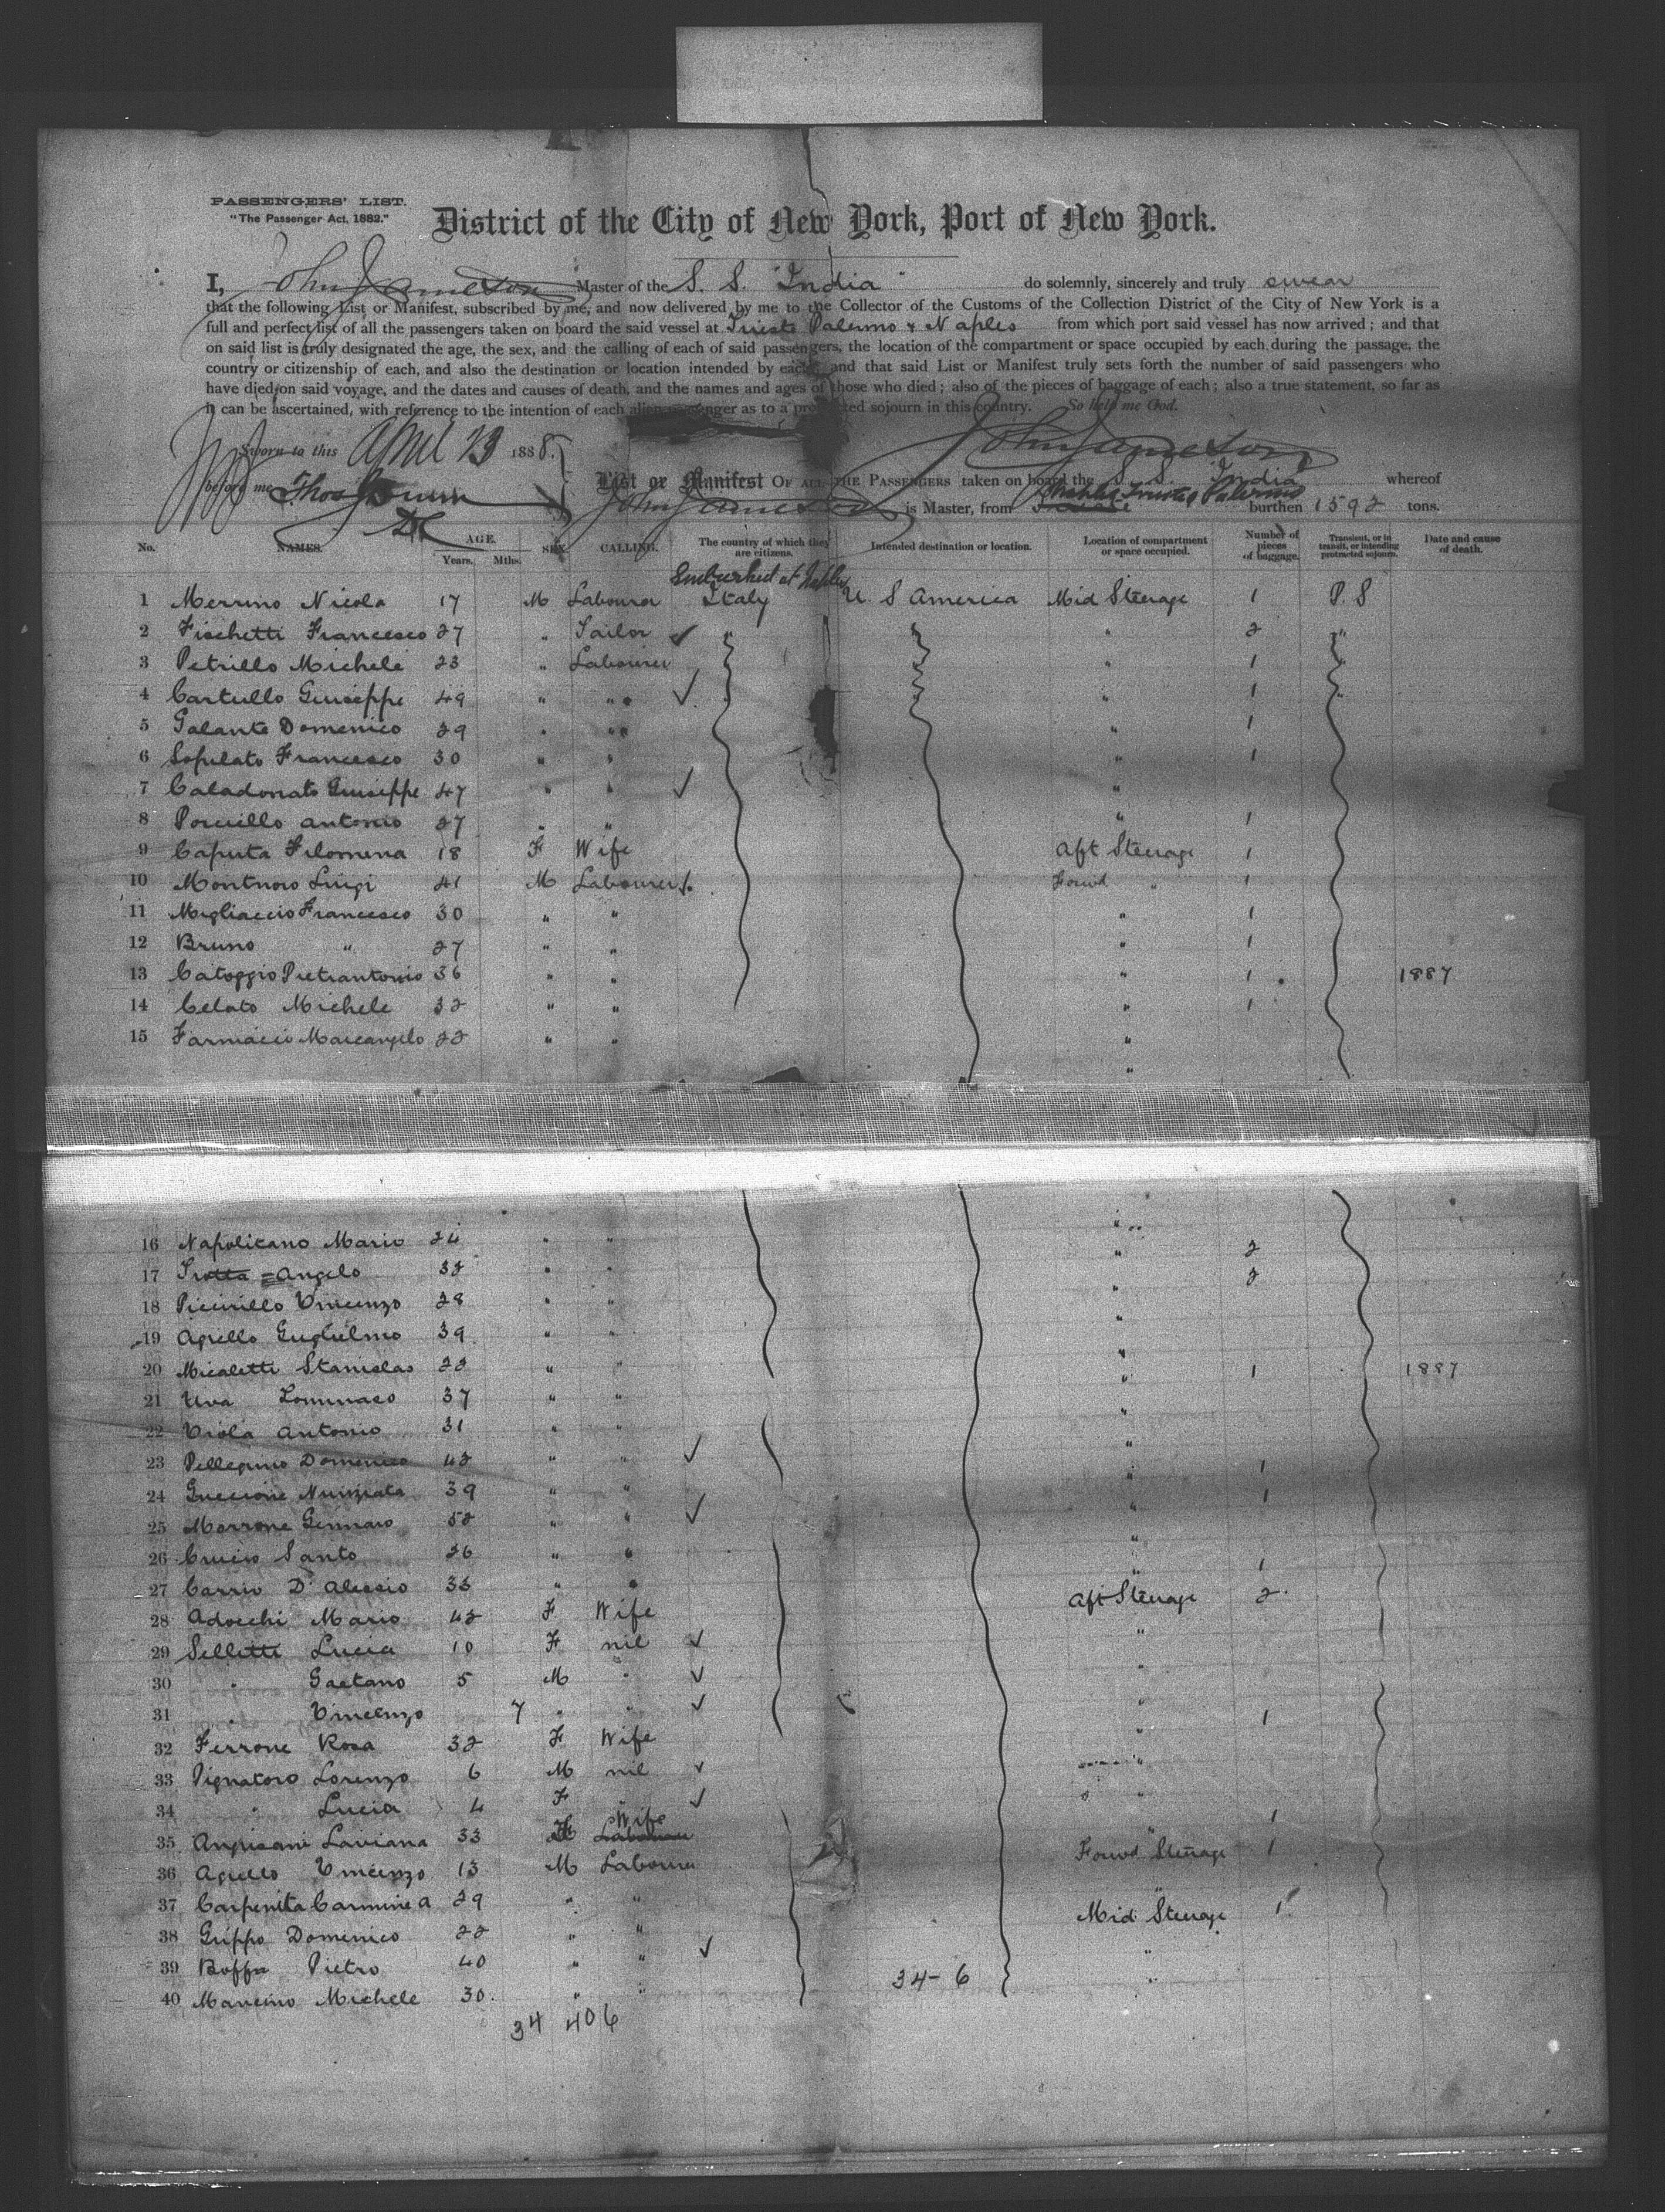 PASSENGERS' LIST.
"The Passenger Act, 1882."
District of the City of New York, Port of New York.
I, John Jameson Master of the S. S. "India" do solemnly, sincerely and truly swear
that the following List or Manifest, subscribed by me, and now delivered by me to the Collector of the Customs of the Collection District of the City of New York is a
full and perfect list of all the passengers taken on board the said vessel at Trieste Palermo & Naples from which port said vessel has now arrived; and that
on said list is truly designated the age, the sex, and the calling of each of said passengers, the location of the compartment or space occupied by each during the passage, the
country or citizenship of each, and also the destination or location intended by each and that said List or Manifest truly sets forth the number of said passengers who
have died on said voyage, and the dates and causes of death, and the names and ages of those who died; also of the pieces of baggage of each; also a true statement, so far as
it can be ascertained, with reference to the intention of each alien passenger as to a protracted sojourn in this country. So help me God.
Sworn to this April 23 1888. John Jameson
before me Thos
List or Manifest OF ALL THE PASSENGERS taken on board the S. S. India whereof
John Jameson is Master, from Naples Trieste & Palermo burthen 1592 tons.
No. NAMES. AGE. Years. Mths. SEX. CALLING. The country of which they are citizens. Intended destination or location. Location of compartment or space occupied. Number of pieces of baggage. Transient, or in transit, or intending protracted sojourn. Date and cause of death.
Embarked at Naples
1 Merrino Nicola 17 M Labourer Italy U S America Mid Steerage 1 P. S
2 Fischetti Francesco 27 " Tailor ✓ " " 2 "
3 Petrillo Michele 23 " Labourer " 1
4 Cartullo Giuseppe 49 " " ✓ " 1
5 Galante Domenico 29 " " " 1
6 Sopulato Francesco 30 " " " 1
7 Caladonato Giuseppe 47 " " ✓ "
8 Porciello Antonio 27 " " " 1
9 Caputa Filomena 18 F Wife Aft Steerage 1
10 Luigi 41 M Labourer Forwd " 1
11 Migliaccio Francesco 30 " " " 1
12 Bruno " 27 " " " 1
13 Catoggio Pietrantonio 36 " " " 1 1887
14 Celato Michele 32 " " " 1
15 Farmacio Marcangelo 22 " " "
"
16 Napolitano Mario 24 " " "
17 Trotta = Angelo 32 " " " 2
18 Piccirillo Vincenzo 28 " " " 2
19 Agrello Guglielmo 39 " " "
20 Micaletti Stanislas 22 " " " 1 1887
21 Uva Tommaso 37 " " "
22 Viola Antonio 31 " " "
23 Pellegrino Domenico 42 " " ✓ " 1
24 Guccione Nunziata 39 " " " 1
25 Morrone Gennaro 52 " " ✓ "
26 Santo 26 " " "
27 Carrio D'Alessio 33 " " " 1
28 Adocchi Mario 42 F Wife Aft Steerage 2
29 Selletti Lucia 10 F nil ✓ "
30 " Gaetano 5 M " ✓ "
31 " Vincenzo 7 " " ✓ "
32 Ferrone Rosa 32 F Wife " 1
33 Pignatoro Lorenzo 6 M nil ✓ "
34 " Lucia 4 F " ✓ "
35 Angrisani Laviana 33 F Wife " 1
36 Agrello Vincenzo 13 M Labourer Forwd Steerage 1
37 Carpenita Carmine A 29 " " "
38 Grippo Domenico 22 " " Mid Steerage 1
39 Boffa Pietro 40 " " ✓ "
40 Mancino Michele 30 " " "
34-6
34 40 6